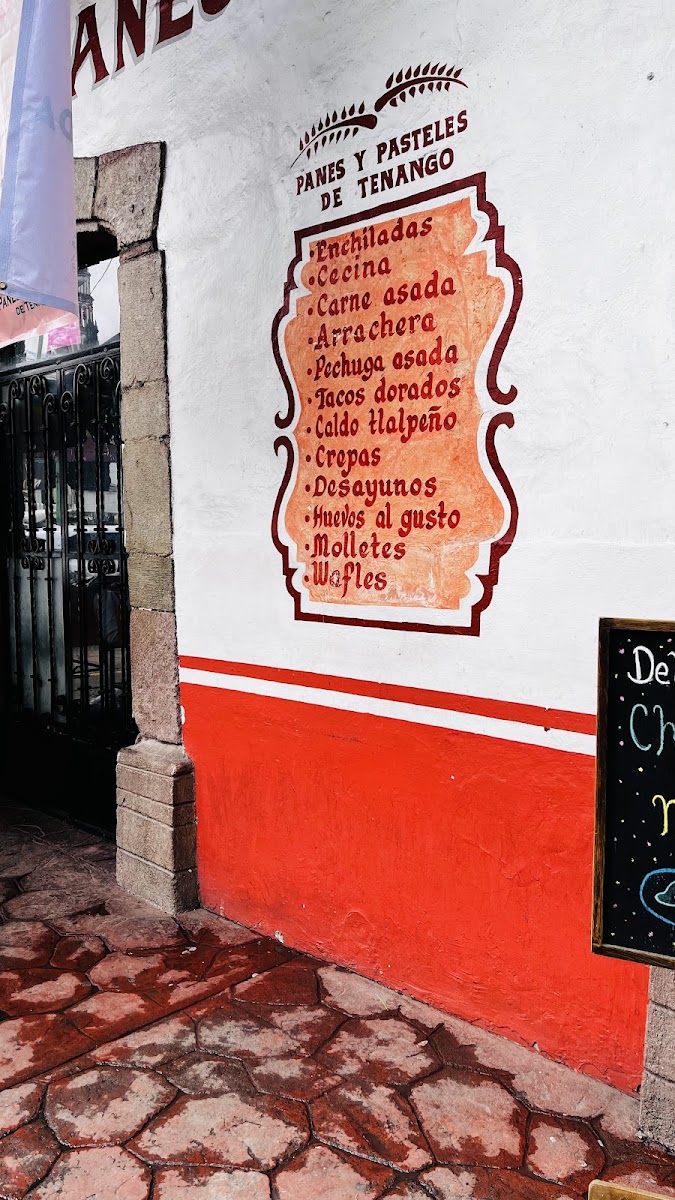 PANES Y PASTELES
DE TENANGO
• Enchiladas
• Cecina
• Carne asada
• Arrachera
• Pechuga asada
• Tacos dorados
• Caldo tlalpeño
• Crepas
• Desayunos
• Huevos al gusto
• Molletes
• Wafles